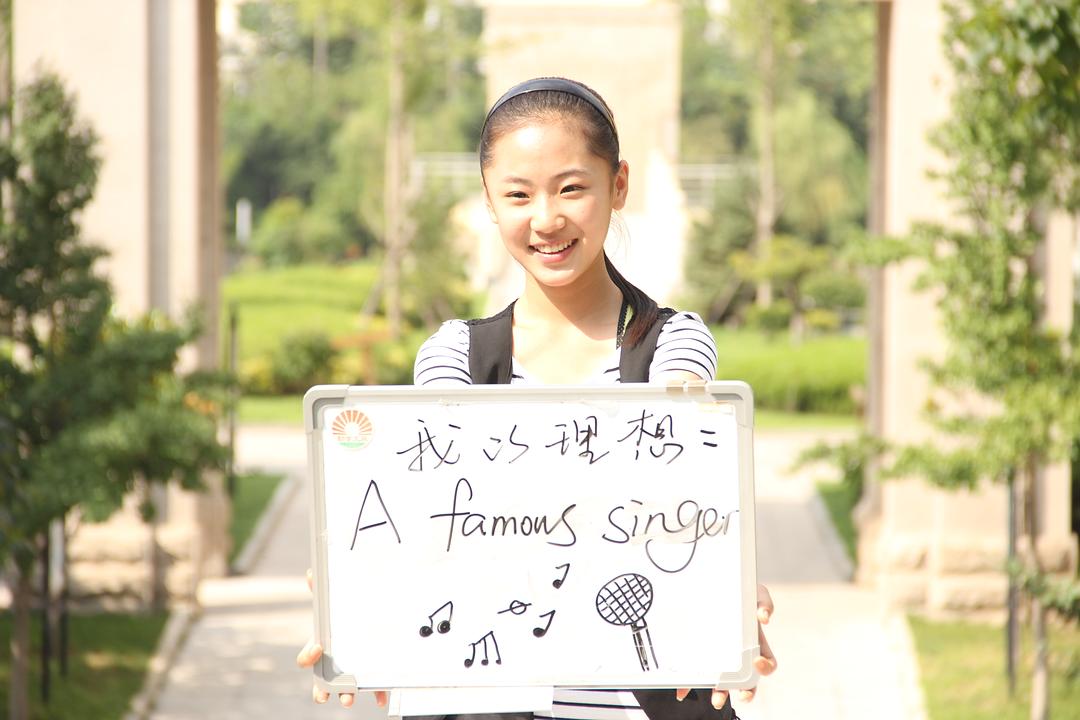 我的理想=
A famous singer